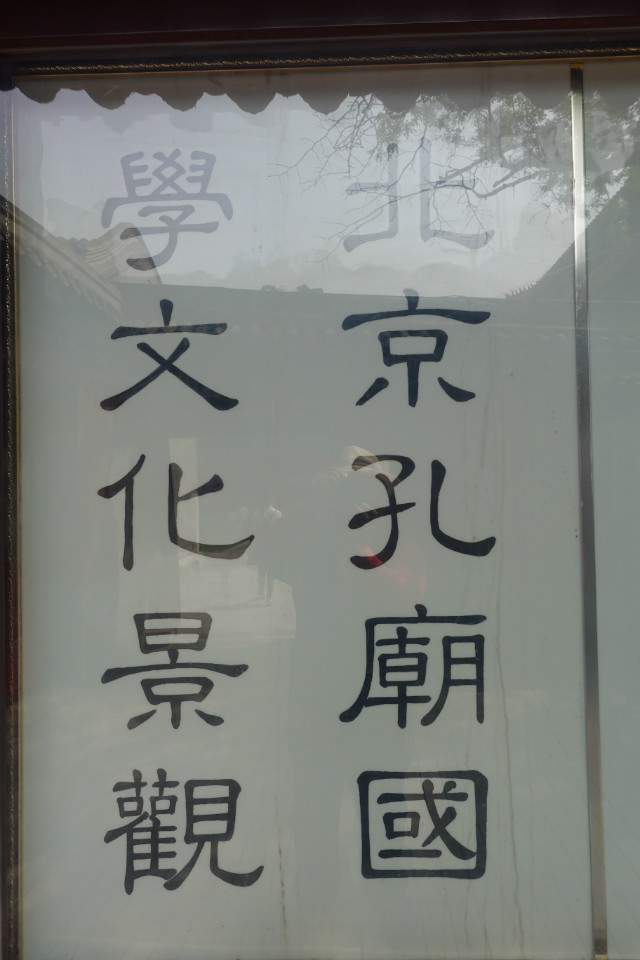 北京孔廟國
學文化景觀